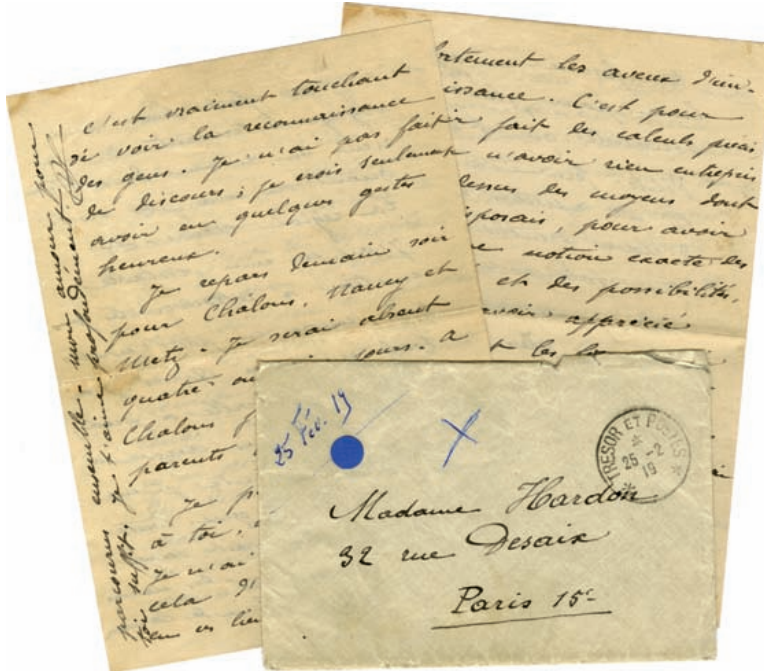 c'est vraiment touchant
de voir la reconnaissance
des gens. Je n'ai pas fait
de discours ; je crois seulement
avoir eu quelques gestes
heureux.
Je repars demain soir
pour Châlons, Nancy et
Metz. Je serai absent
quatre ou jours. A
Châlons
parents
Je p
à toi,
Je n'ai
cela
en ces lien
parcourus ensemble. mon amour pour
toi suffit. Je t'aime profondément
fortement les aveux d'im-
issance. C'est pour
ir fait des calculs précis
n'avoir rien entrepris
dessus des moyens dont
isposais, pour avoir
ne notion exacte des
et des possibilités,
voir apprécié
t les
25 Fév. 19
TRESOR ET POSTES
25 -2
19
Madame Hardon
32 rue Desaix
Paris 15e